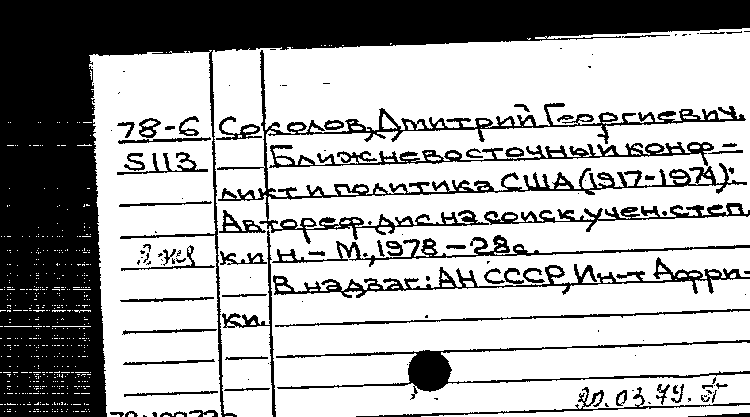 78-6 Соколов, Дмитрий Георгиевич.
5113 Ближневосточный конф-
ликт и политика США (1917-1974):
Автореф. дис. на соиск. учен. степ.
2 экз к.и.н. - М., 1978. - 28с.
В надзаг.: АН СССР, Ин-т Афри-
ки.
20.03.79.